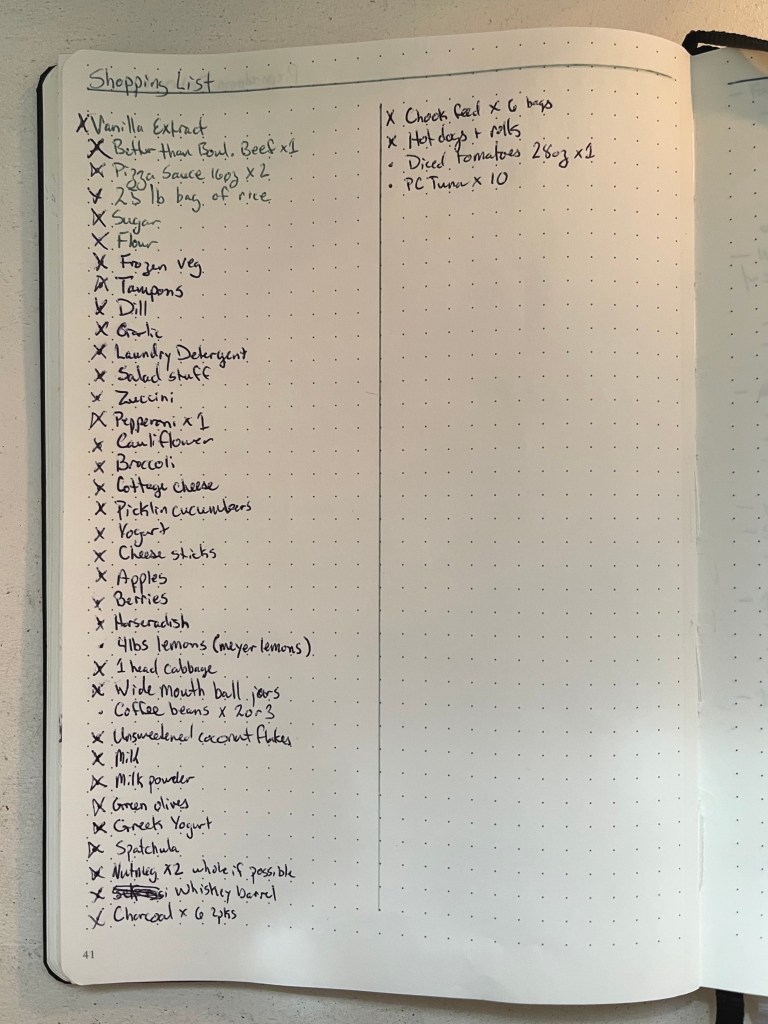 Shopping List
X Vanilla Extract
X Better than Boul. Beef x1
X Pizza Sauce 16oz x 2
X 25 lb bag of rice
X Sugar
X Flour
X Frozen veg
X Tampons
X Dill
X Garlic
X Laundry Detergent
X Salad stuff
X Zuccini
X Pepperoni x 1
X Cauliflower
X Broccoli
X Cottage cheese
X Picklin cucumbers
X Yogurt
X Cheese sticks
X Apples
X Berries
X Horseradish
• 4lbs lemons (meyer lemons)
X 1 head cabbage
X Wide mouth ball jars
• Coffee beans x 2 or 3
X Unsweetened coconut flakes
X Milk
X Milk powder
X Green olives
X Greek Yogurt
X Spatchula
X Nutmeg x2 whole if possible
X Whiskey barrel
X Charcoal x 6 2pks
X Chook feed x 6 bags
X Hotdogs + rolls
• Diced tomatoes 28oz x 1
• PC Tuna x 10
41